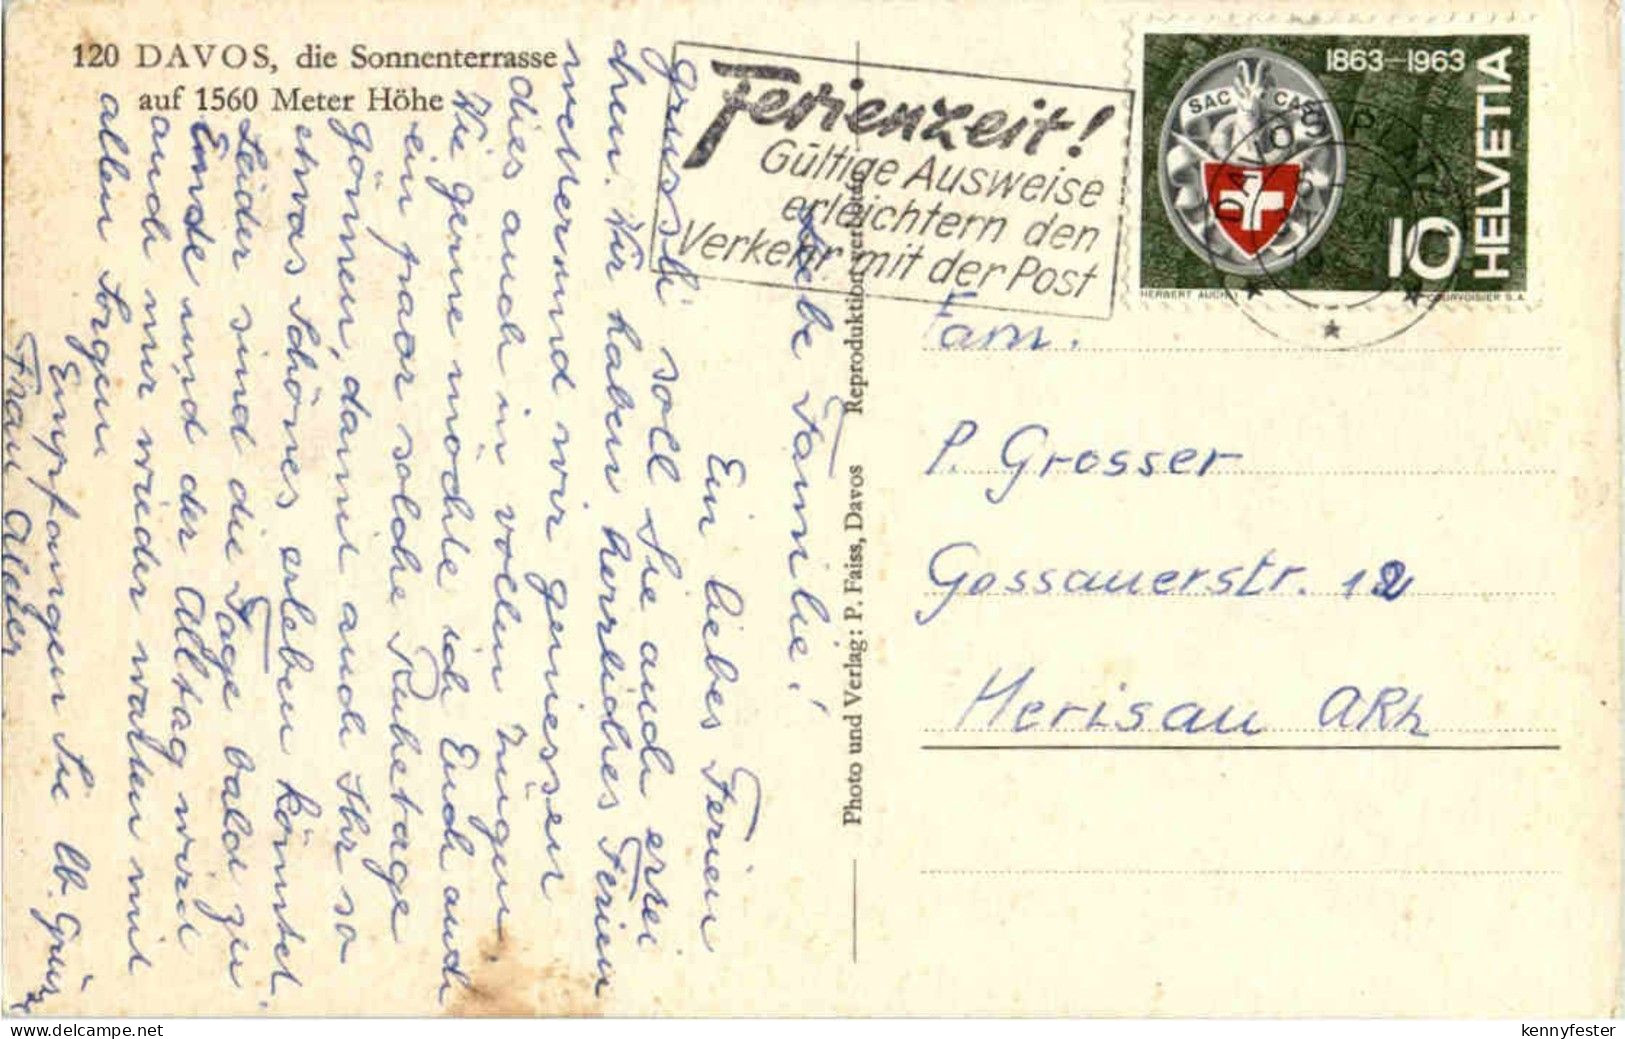 120 DAVOS, die Sonnenterrasse
auf 1560 Meter Höhe
Ferienzeit!
Gültige Ausweise
erleichtern den
Verkehr mit der Post
1863–1963
SAC CAS
HELVETIA
10
HERBERT AUCHLI
COURVOISIER S.A.
DAVOS PLATZ
Photo und Verlag: P. Faiss, Davos Reproduktion verboten
Liebe Familie!
Ein liebes Ferien
grüssli soll Sie auch errei
chen. Wir haben herrliches Ferien
wetter und wir geniessen
dies auch in vollen Zügen
Wie gerne möchte ich Euch auch
ein paar solche Ruhetage
gönnen, damit auch Ihr so
etwas Schönes erleben könntet.
Leider sind die Tage bald zu
Ende und der Alltag wird
auch mir wieder warten mit
allen Sorgen
Empfangen Sie lb. Grüsse
Frau
Fam.
P. Grosser
Gossauerstr. 12
Herisau ARh
kennyfester